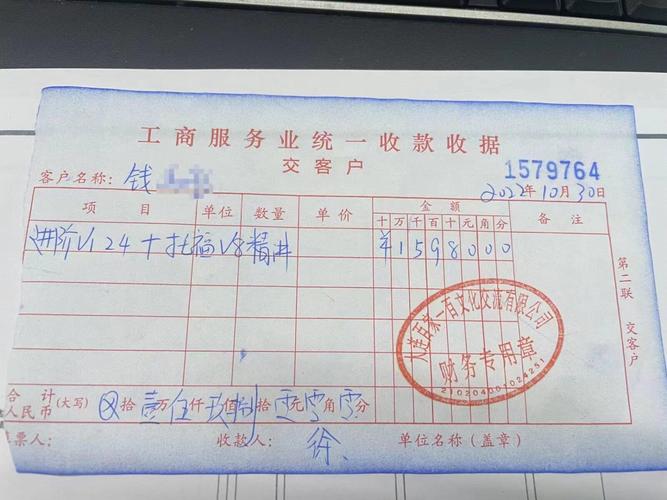 工商服务业统一收款收据
交客户
1579764
客户名称：钱
2022年10月30日
项目 单位 数量 单价 金额 备注
十 万 千 百 十 元 角 分
进阶V124+托福V8精讲 ¥1598000
第二联 交客户
大连百家一百文化交流有限公司
财务专用章
210204001024251
合计人民币（大写） ⊗拾壹万伍仟玖佰捌拾零元零角零分
票人： 收款人：徐 单位名称（盖章）